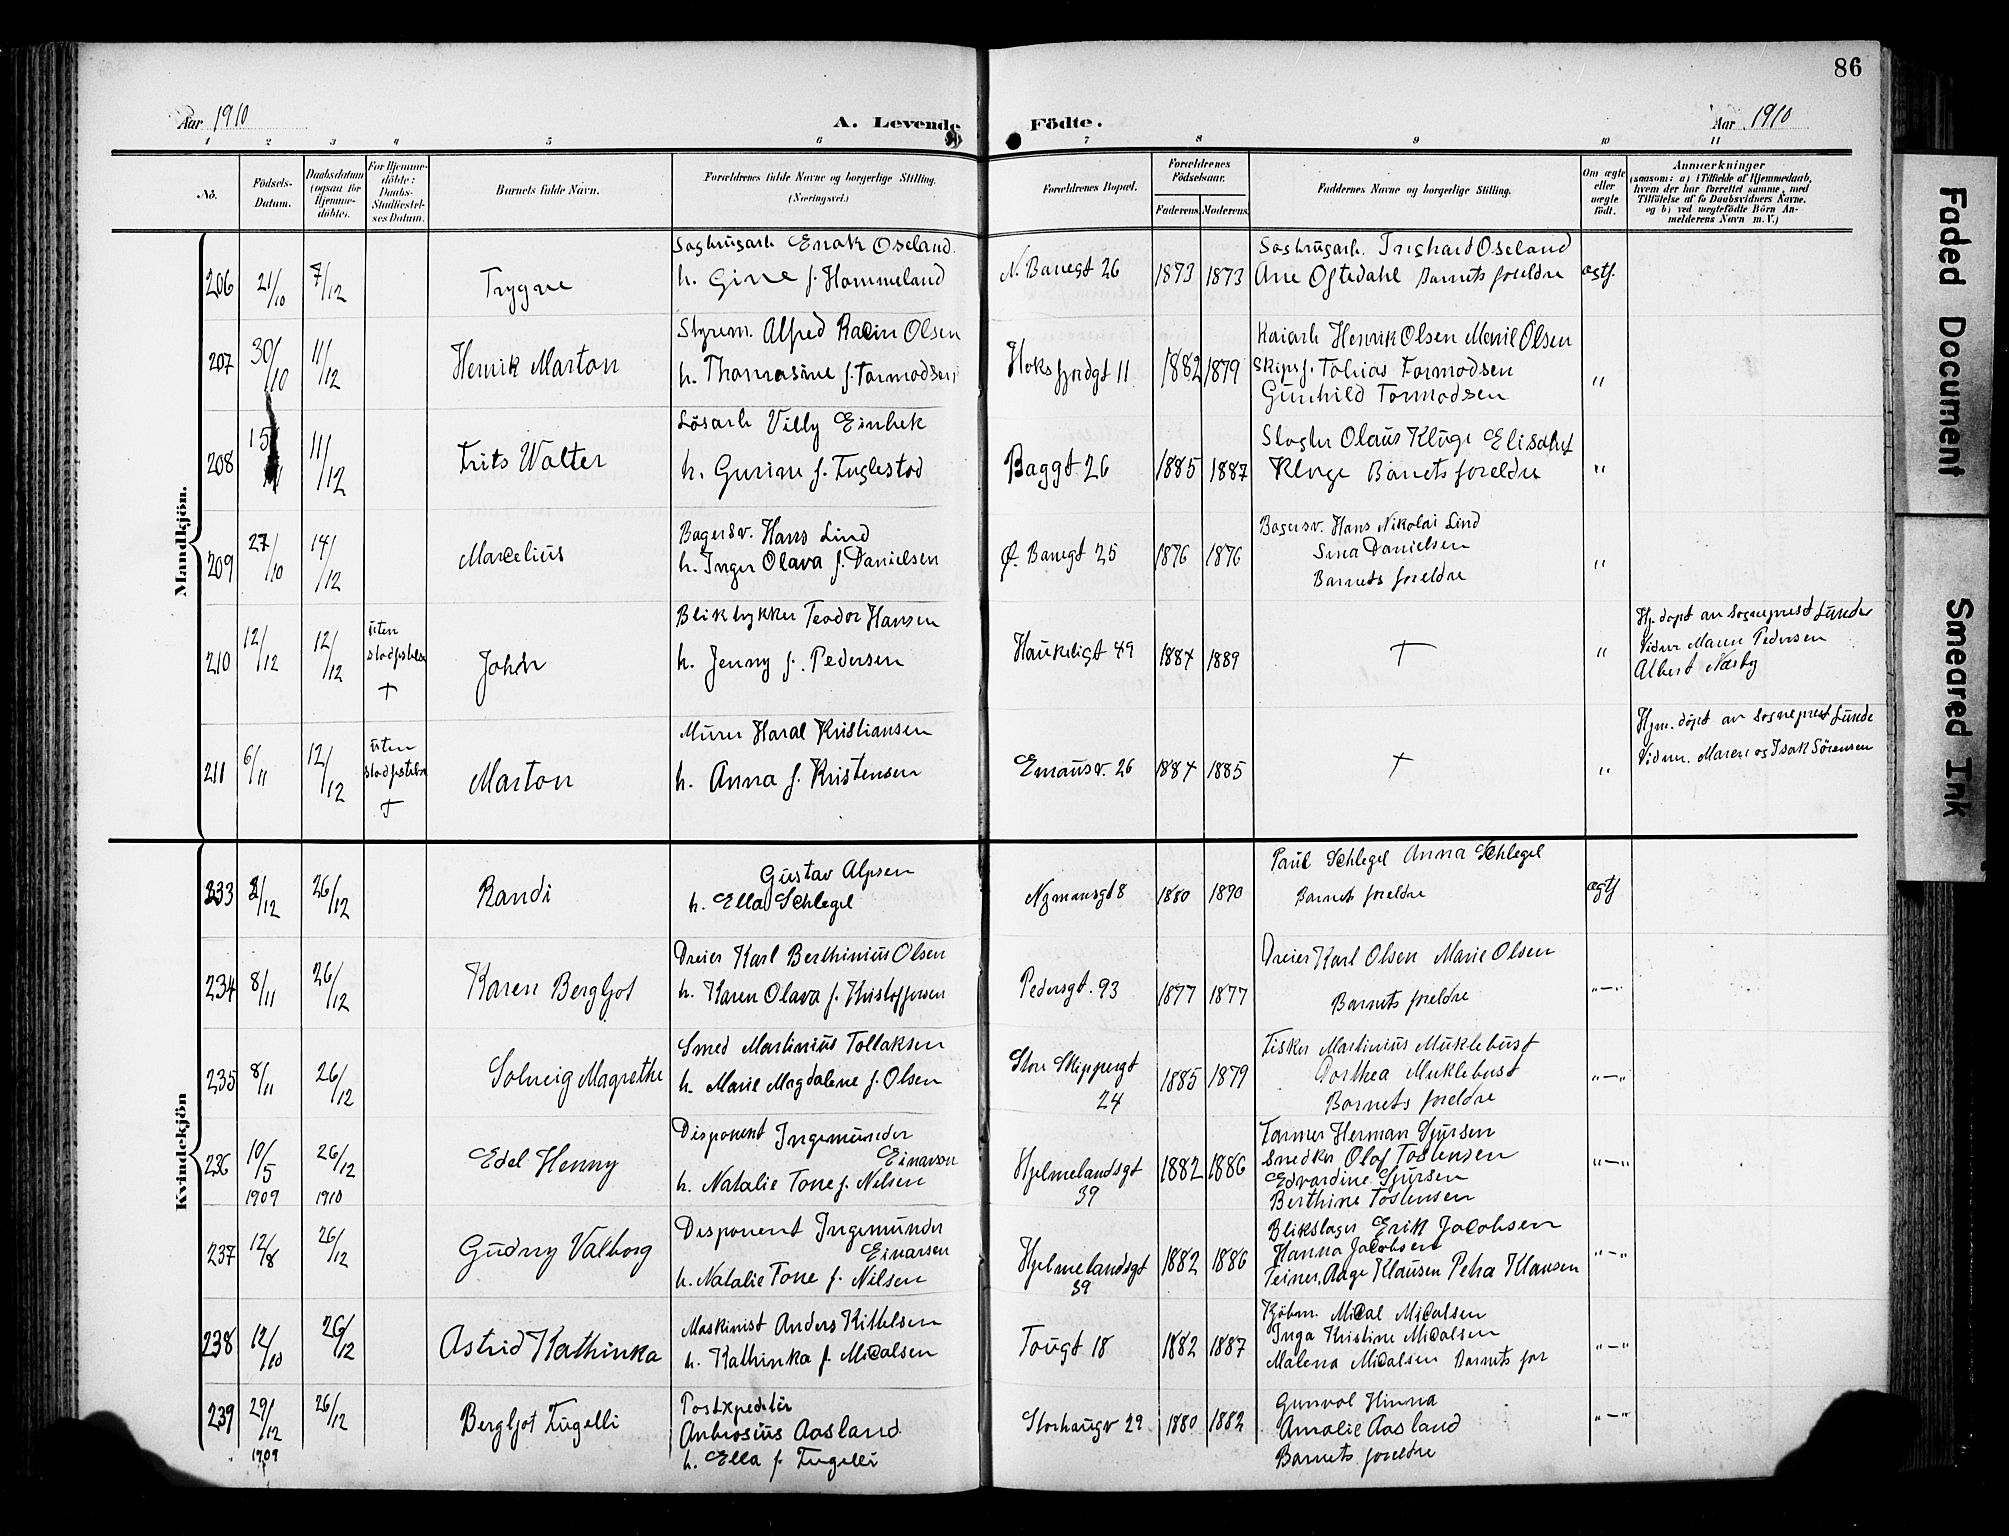 86
Aar 1910
A. Levende Födte.
Aar 1910
1 2 3 4 5 6 7 8 9 10 11
No.
Födsels-Datum.
Daabsdatum (ogsaa for Hjemme-döbte).
For Hjemme-döbte: Daabs-Stadfæstel-ses Datum.
Barnets fulde Navn.
Forældrenes fulde Navne og borgerlige Stilling. (Næringsvei.)
Forældrenes Bopæl.
Forældrenes Födselsaar.
Faderens. Moderens.
Faddernes Navne og borgerlige Stilling.
Om ægte eller uægte født.
Anmærkninger
(saasom: a) i Tilfælde af Hjemmedaab, hvem der har forrettet samme, med Tilföielse af to Daabsvidners Navne. og b) ved uægtefödte Börn An-melderens Navn m. V.)
Mandkjön.
206 21/10 7/12 Trygve
Sagbrugsarb Enok Oseland.
h. Gine f. Hommeland
N. Banegt 26 1873 1873
Sagbrugarb. Inghard Oseland
Ane Oftedahl Barnets foreldre
207 30/10 11/12 Henrik Marton
Styrem. Alfred Racin Olsen
h. Thomasine f. Tormodsen
Hoksfjordgt 11 1882 1879
Kaiarb Henrik Olsen Meril Olsen
Skipsf. Tobias Tormodsen
Gunhild Tormodsen
"
208 15 11/12 Frits Walter
Løsarb Villy Einbek
h. Gurine f. Fuglestad
Baggt 26 1885 1887
Slagter Olaus Kluge Elisabet
Kluge Barnets foreldre
"
209 27/10 14/12 Marcelius
Bagersv. Hans Lind
h. Inger Olava f. Danielsen
Ø. Banegt 25 1876 1876
Bagersv. Hans Nikolai Lind
Sina Danielsen
Barnets foreldre
"
210 12/12 12/12 uten stadfestelse + John
Blikkytkker Teodor Hansen
h. Jenny f. Pedersen
Haukeligt 49 1884 1889 + "
Hj. døpt av Sogneprest Lunde
Vidner Maren Pedersen
Albert Næsby
211 6/11 12/12 uten stadfestelse + Marton
Murer Haral Kristiansen
h. Anna f. Kristensen
Emausv. 26 1884 1885 + "
Hjm. døpt av Sogneprest Lunde
Vidner. Maren og Isak Sørensen
Kvindekjön
233 2/12 26/12 Randi
Gustav Alpsen
h. Ella Schlegel
Nymansgt 8 1880 1890
Paul Schlegel Anna Schlegel
Barnets foreldre
ægtf
234 8/11 26/12 Karen Bergljot
Dreier Karl Berthinius Olsen
h. Karen Olava f. Kristoffersen
Pedersgt. 93 1877 1877
Dreier Karl Olsen Marie Olsen
Barnets foreldre
"—"
235 8/11 26/12 Solveig Magrethe
Smed Martinius Tollaksen
h. Marie Magdalene f. Olsen
Store Skippergt 24 1885 1879
Fisker Martinius Muklebust
Dorthea Muklebust
Barnets foreldre
"—"
236 10/5 1909 26/12 1910 Edel Henny
Disponent Ingemunder Einarson
h. Natalie Tone f. Nilsen
Hjelmelandsgt 39 1882 1886
Tormer Herman Sjursen
Snedker Olaf Tostensen
Edvardine Sjursen
Berthine Tostensen
"—"
237 12/8 26/12 Gudny Valborg
Disponent Ingemunder Einarsen
h. Natalie Tone f. Nilsen
Hjelmelandsgt 39 1882 1886
Blikslager Erik Jacobsen
Hanna Jacobsen
Feiner. Aage Klausen Petra Klausen
"—"
238 12/10 26/12 Astrid Kathinka
Maskinist Anders Kittelsen
h. Kathinka f. Micalsen
Tougt 18 1882 1887
Kjøbm. Mical Micalsen
Inga Kristine Micalsen
Malena Micalsen Barnets for
"—"
239 29/12 1909 26/12 Bergljot Fugelli
Postexpeditør
Anbrosius Aasland
h. Ella f. Fugelli
Storhaugv 29 1880 1882
Gunvol Hinna
Amalie Aasland
Barnets foreldre
"—"
Faded Document
Smeared Ink